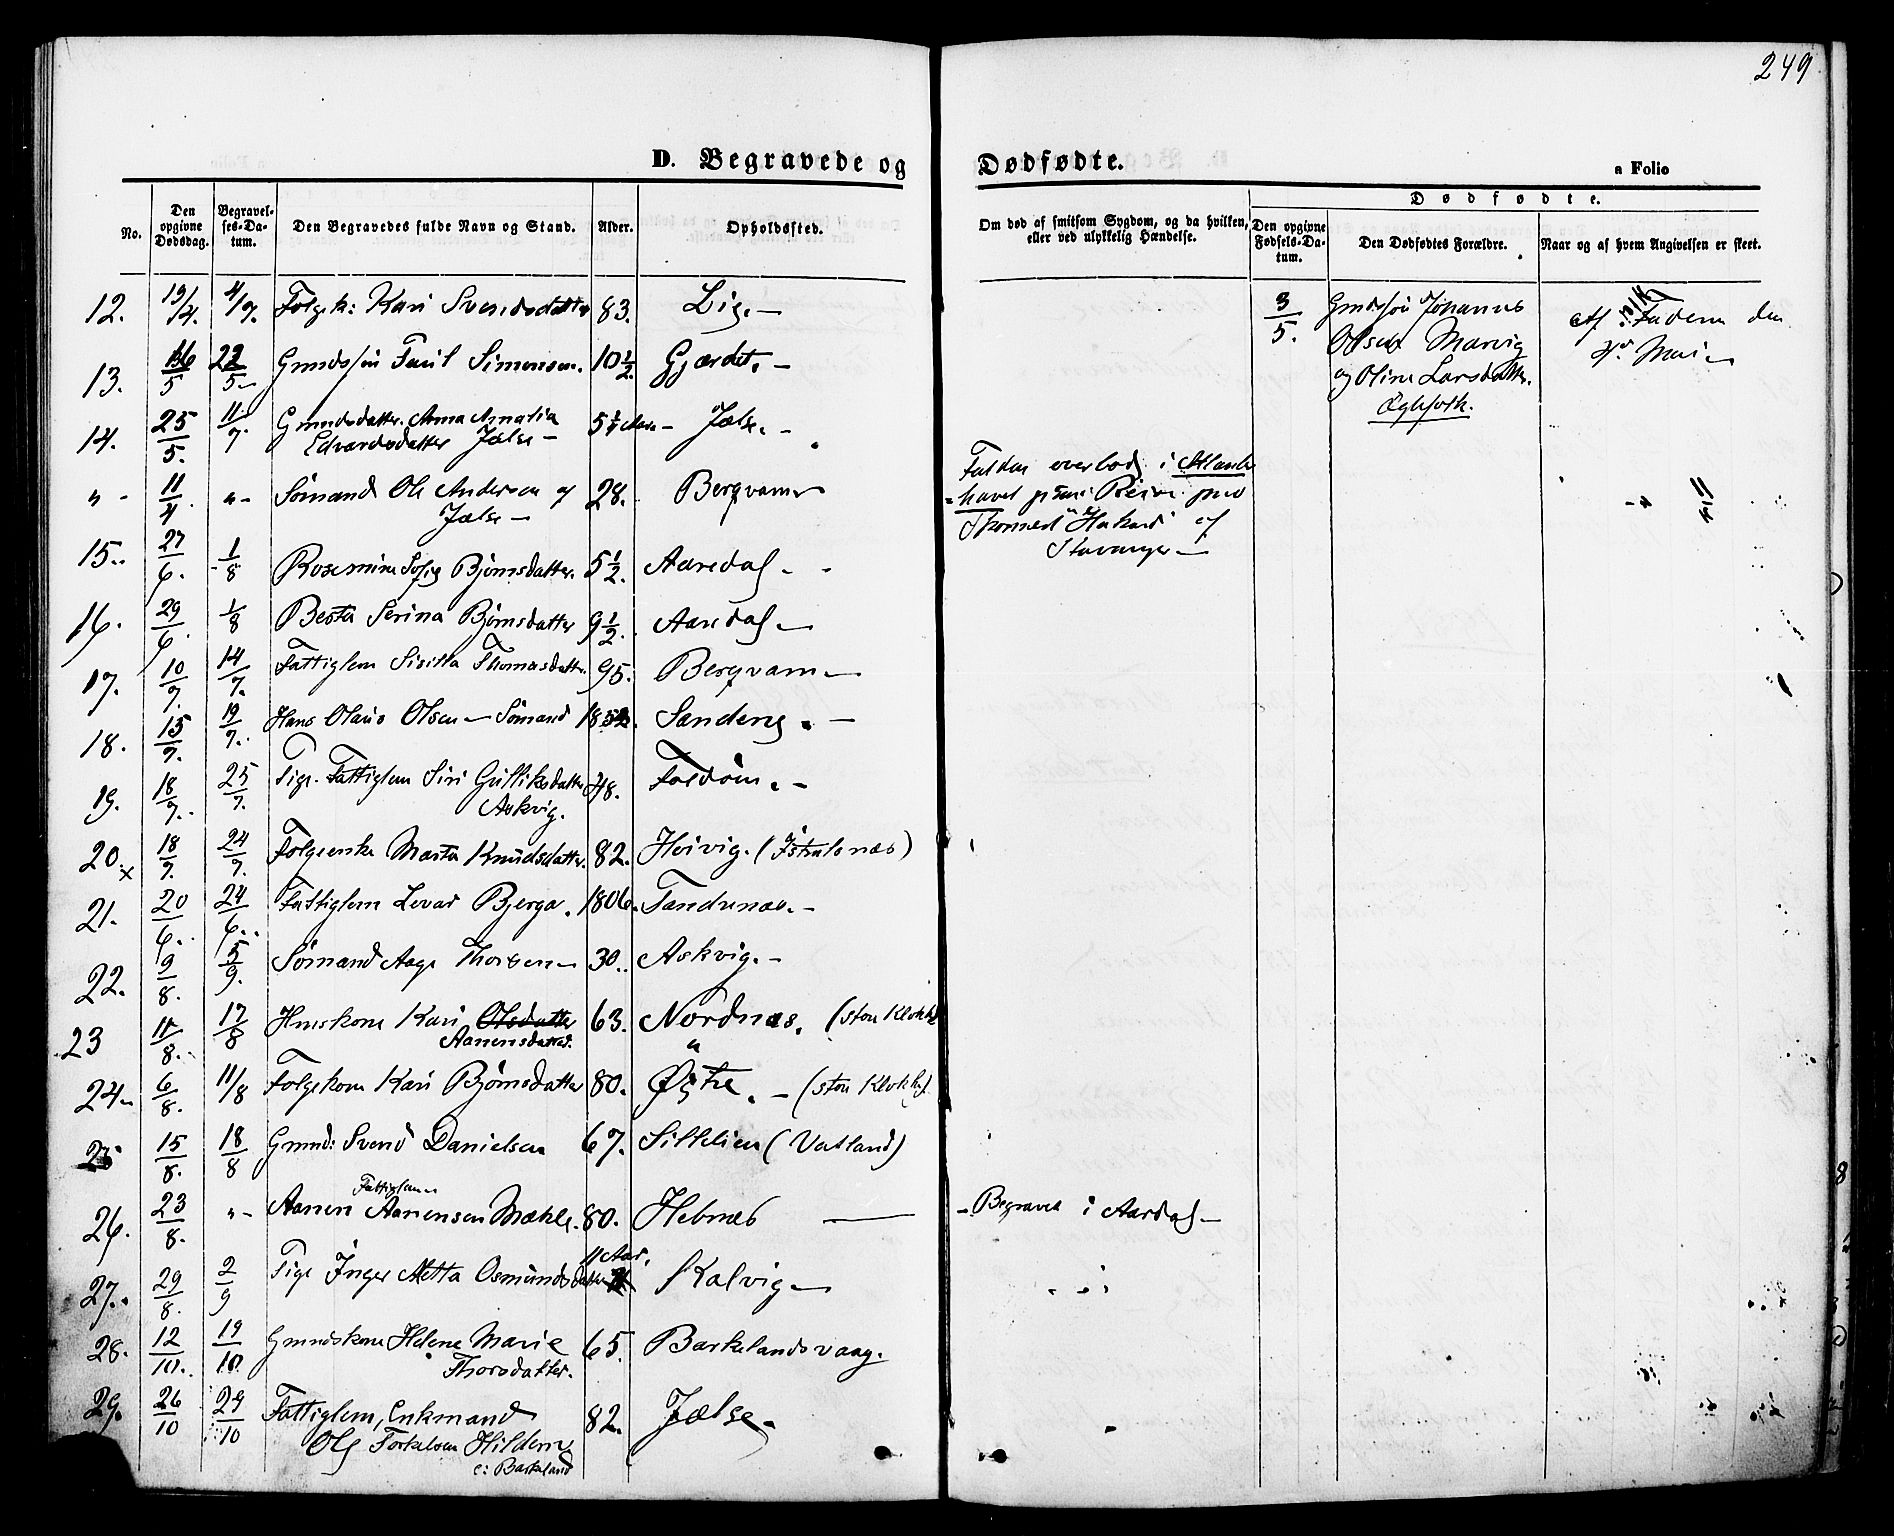 249
D. Begravede og Dødfødte.
a Folio
No.
Den opgivne Dødsdag.
Begravelses-Datum.
Den Begravedes fulde Navn og Stand.
Alder.
Opholdssted.
Om død af smitsom Sygdom, og da hvilken, eller ved ulykkelig Hændelse.
Dødfødte.
Den opgivne Fødsels-Datum.
Den Dødfødtes Forældre.
Naar og af hvem Angivelsen er skeet.
12. 13/4. 4/7. Folgek: Kari Svendsdatter 83. Lig. –
13. 16/5 22/5 Gmndssøn Paul Simonsen. 10 1/2. Gjærdet. –
14. 25/5. 11/7 Gmndsdatter. Anna Amalia
Edvardsdatter Jælse – 5 1/4 Jælse. –
" - 11/4 " - Sømand Ole Andersen af
Jælse – 28. Bergvam
15. 27/6. 1/8 Rosemine Sofie Bjørnsdatter. 5 1/2. Aaredal. -
16. 29/6. 1/8 Berta Serina Bjørnsdatter 9 1/2. Aaredal –
17. 10/7. 14/7. Fattiglem Sisilla Thomasdatter. 95. Bergvam –
18. 15/7. 19/7. Hans Olaus Olsen – Sømand Sandeng. –
19. 18/7. 25/7. Pige. Fattiglem Siri Gulliksdatter
Askvig. 48. Foldøen. –
20. x 18/7. 24/7. Folgeenke Marta Knudsdatter. 82. Høivig. (Istralsnæs)
21. 20/6. 24/6. Fattiglem Levar Bjerga. 1806. Tendenæs. –
22. 9/8. 5/9. Sømand Aage Thorsen – 30. Askvig. –
23 11/8. 17/8 Huskone Kari Olsdatter
Aanensdatter. 63. Nordnæs. (
24 6/8. 11/8 Folgekone Kari Bjørnsdatter 80. Østre. – (
25 15/8. 18/8 Gmnd: Svend Danielsen 67. Sillelien (Vatland)
Fattiglem
26. 23/8. " - Aanen Aanensen Mæhle. 80. Hebnæs – – Begravet i Aardal –
27. 29/8. 2/9 Pige Inger Metta Osmundsdatter 11 Aar. Kalvig –
28. 12/10. 19/10. Gmndskone Helene Marie
Thorsdatter. 65. Barkelandsvaag.
29. 26/10 29/10 Fattiglem, Enkmand
Ole Torkelsen Hilden
c: Barkeland 82. Jælse –
Falden overbord i Atlanterhavet paa Reise med
Skonnert "Haabet" af
Stavanger –
3/5. Gmndssøn Johannes
Olsen Marvig
og Oline Larsdatter.
Ægtefolk.
af Faderen den
4de Mai –